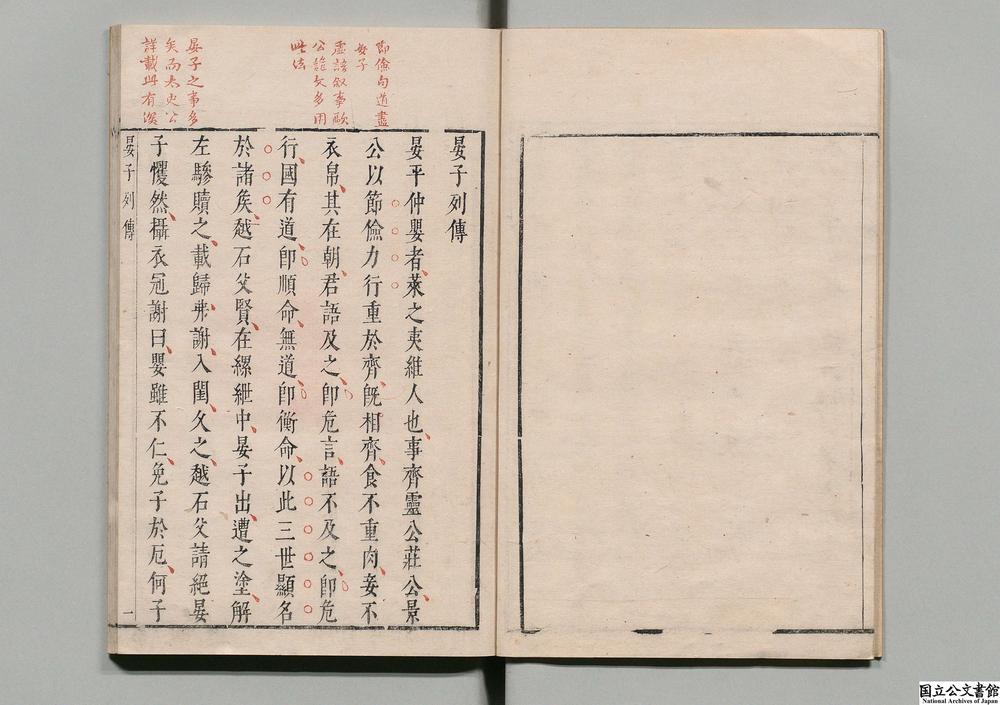 節儉句道盡
晏子
虛語叙事歐
公誌文多用
此法
晏子之事多
矣而太史公
詳載此有深
晏子列傳
晏平仲嬰者萊之夷維人也事齊靈公莊公景
公以節儉力行重於齊旣相齊食不重肉妾不
衣帛其在朝君語及之卽危言語不及之卽危
行國有道卽順命無道卽衡命以此三世顯名
於諸矦越石父賢在縲紲中晏子出遭之塗解
左驂贖之載歸弗謝入閨久之越石父請絕晏
子懼然攝衣冠謝曰嬰雖不仁免子於厄何子
晏子列傳
一
国立公文書館
National Archives of Japan